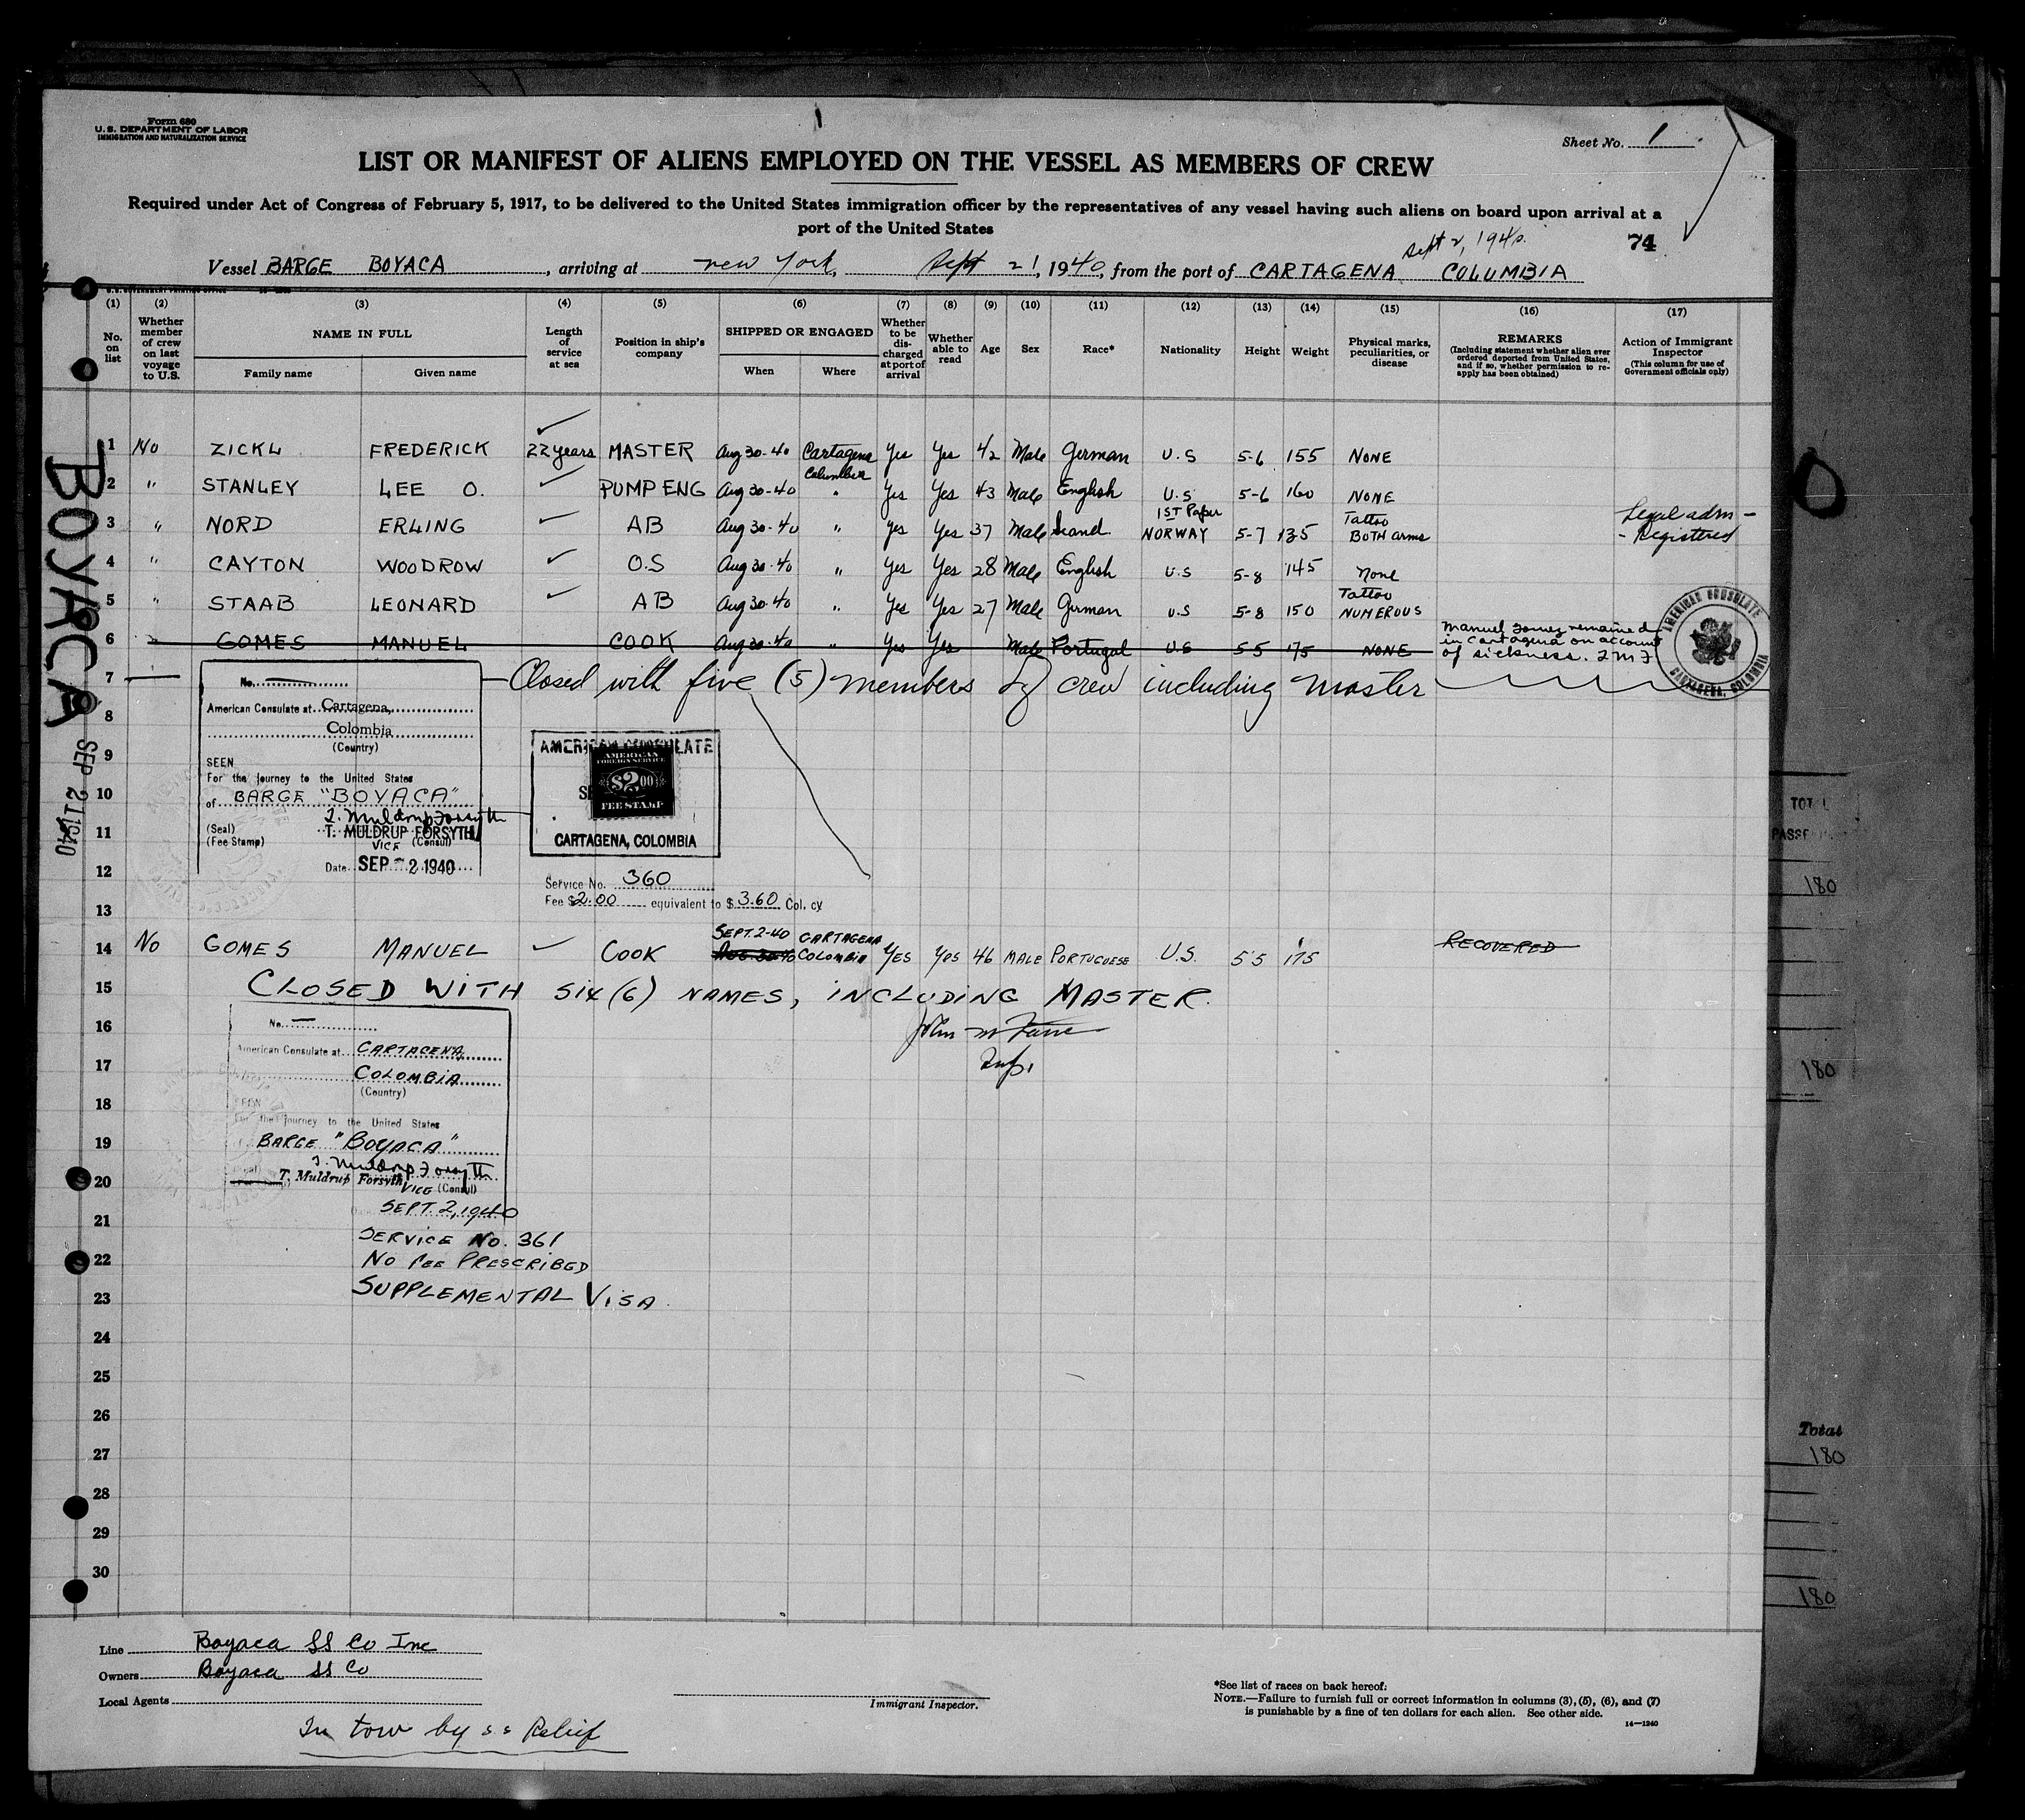 Form 680
U.S. DEPARTMENT OF LABOR
IMMIGRATION AND NATURALIZATION SERVICE
1
Sheet No. 1
LIST OR MANIFEST OF ALIENS EMPLOYED ON THE VESSEL AS MEMBERS OF CREW
Required under Act of Congress of February 5, 1917, to be delivered to the United States immigration officer by the representatives of any vessel having such aliens on board upon arrival at a
port of the United States
74
Sept 2, 1940.
Vessel BARGE BOYACA, arriving at new York, Sept 21, 1940, from the port of CARTAGENA COLUMBIA
(1) (2) (3) (4) (5) (6) (7) (8) (9) (10) (11) (12) (13) (14) (15) (16) (17)
No. on list
Whether member of crew on last voyage to U.S.
NAME IN FULL
Family name
Given name
Length of service at sea
Position in ship's company
SHIPPED OR ENGAGED
When
Where
Whether to be discharged at port of arrival
Whether able to read
Age
Sex
Race*
Nationality
Height
Weight
Physical marks, peculiarities, or disease
REMARKS
(Including statement whether alien ever ordered deported from United States, and if so, whether permission to reapply has been obtained)
Action of Immigrant Inspector
(This column for use of Government officials only)
1 No ZICKL FREDERICK 22 years MASTER Aug 30-40 Cartagena Columbia Yes Yes 42 Male German U.S 5-6 155 NONE
2 " STANLEY LEE O. PUMP ENG Aug 30-40 " Yes Yes 43 Male English U.S 5-6 160 NONE
3 " NORD ERLING AB Aug 30-40 " Yes Yes 37 Male Scand. 1ST Paper NORWAY 5-7 135 Tattoo BOTH arms Legal adm - - Registered
4 " CAYTON WOODROW O.S Aug 30-40 " Yes Yes 28 Male English U.S 5-8 145 None
5 " STAAB LEONARD AB Aug 30-40 " Yes Yes 27 Male German U.S 5-8 150 Tattoo NUMEROUS
6 " GOMES MANUEL COOK Aug 30-40 " Yes Yes Male Portugal U.S 5 5 175 NONE Manuel Gomez remained in Cartagena on account of sickness. TMF
AMERICAN CONSULATE
CARTAGENA, COLOMBIA
7 Closed with five (5) members of crew including master
No.
American Consulate at Cartagena,
Colombia
(Country)
SEEN
For the journey to the United States
of BARGE "BOYACA"
T. Muldrup Forsyth
(Seal) T. MULDRUP FORSYTH
(Fee Stamp) VICE (Consul)
Date SEP 2 1940
AMERICAN CONSULATE
AMERICAN FOREIGN SERVICE
$2.00
FEE STAMP
CARTAGENA, COLOMBIA
Service No. 360
Fee $2.00 equivalent to $3.60 Col. cy
8
9
10
11
12
13
14 No GOMES MANUEL COOK SEPT. 2-40 AUG. 30-40 CARTAGENA COLOMBIA YES YES 46 MALE PORTUGUESE U.S. 5 5 175 RECOVERED
15 CLOSED WITH SIX (6) NAMES, INCLUDING MASTER.
No.
American Consulate at CARTAGENA,
COLOMBIA
(Country)
For the journey to the United States
BARGE "BOYACA"
T. Muldrup Forsyth
T. Muldrup Forsyth
VICE (Consul)
SEPT. 2, 1940
SERVICE No. 361
NO FEE PRESCRIBED
SUPPLEMENTAL VISA
16
17
18
19
20
21
22
23
24
25
26
27
28
29
30
BOYACA
SEP 21 1940
Line Boyaca SS Co Inc
Owners Boyaca SS Co
Local Agents
Immigrant Inspector.
In tow by ss Relief
*See list of races on back hereof.
NOTE.—Failure to furnish full or correct information in columns (3), (5), (6), and (7)
is punishable by a fine of ten dollars for each alien. See other side.
14—1240
180
180
Total
180
180